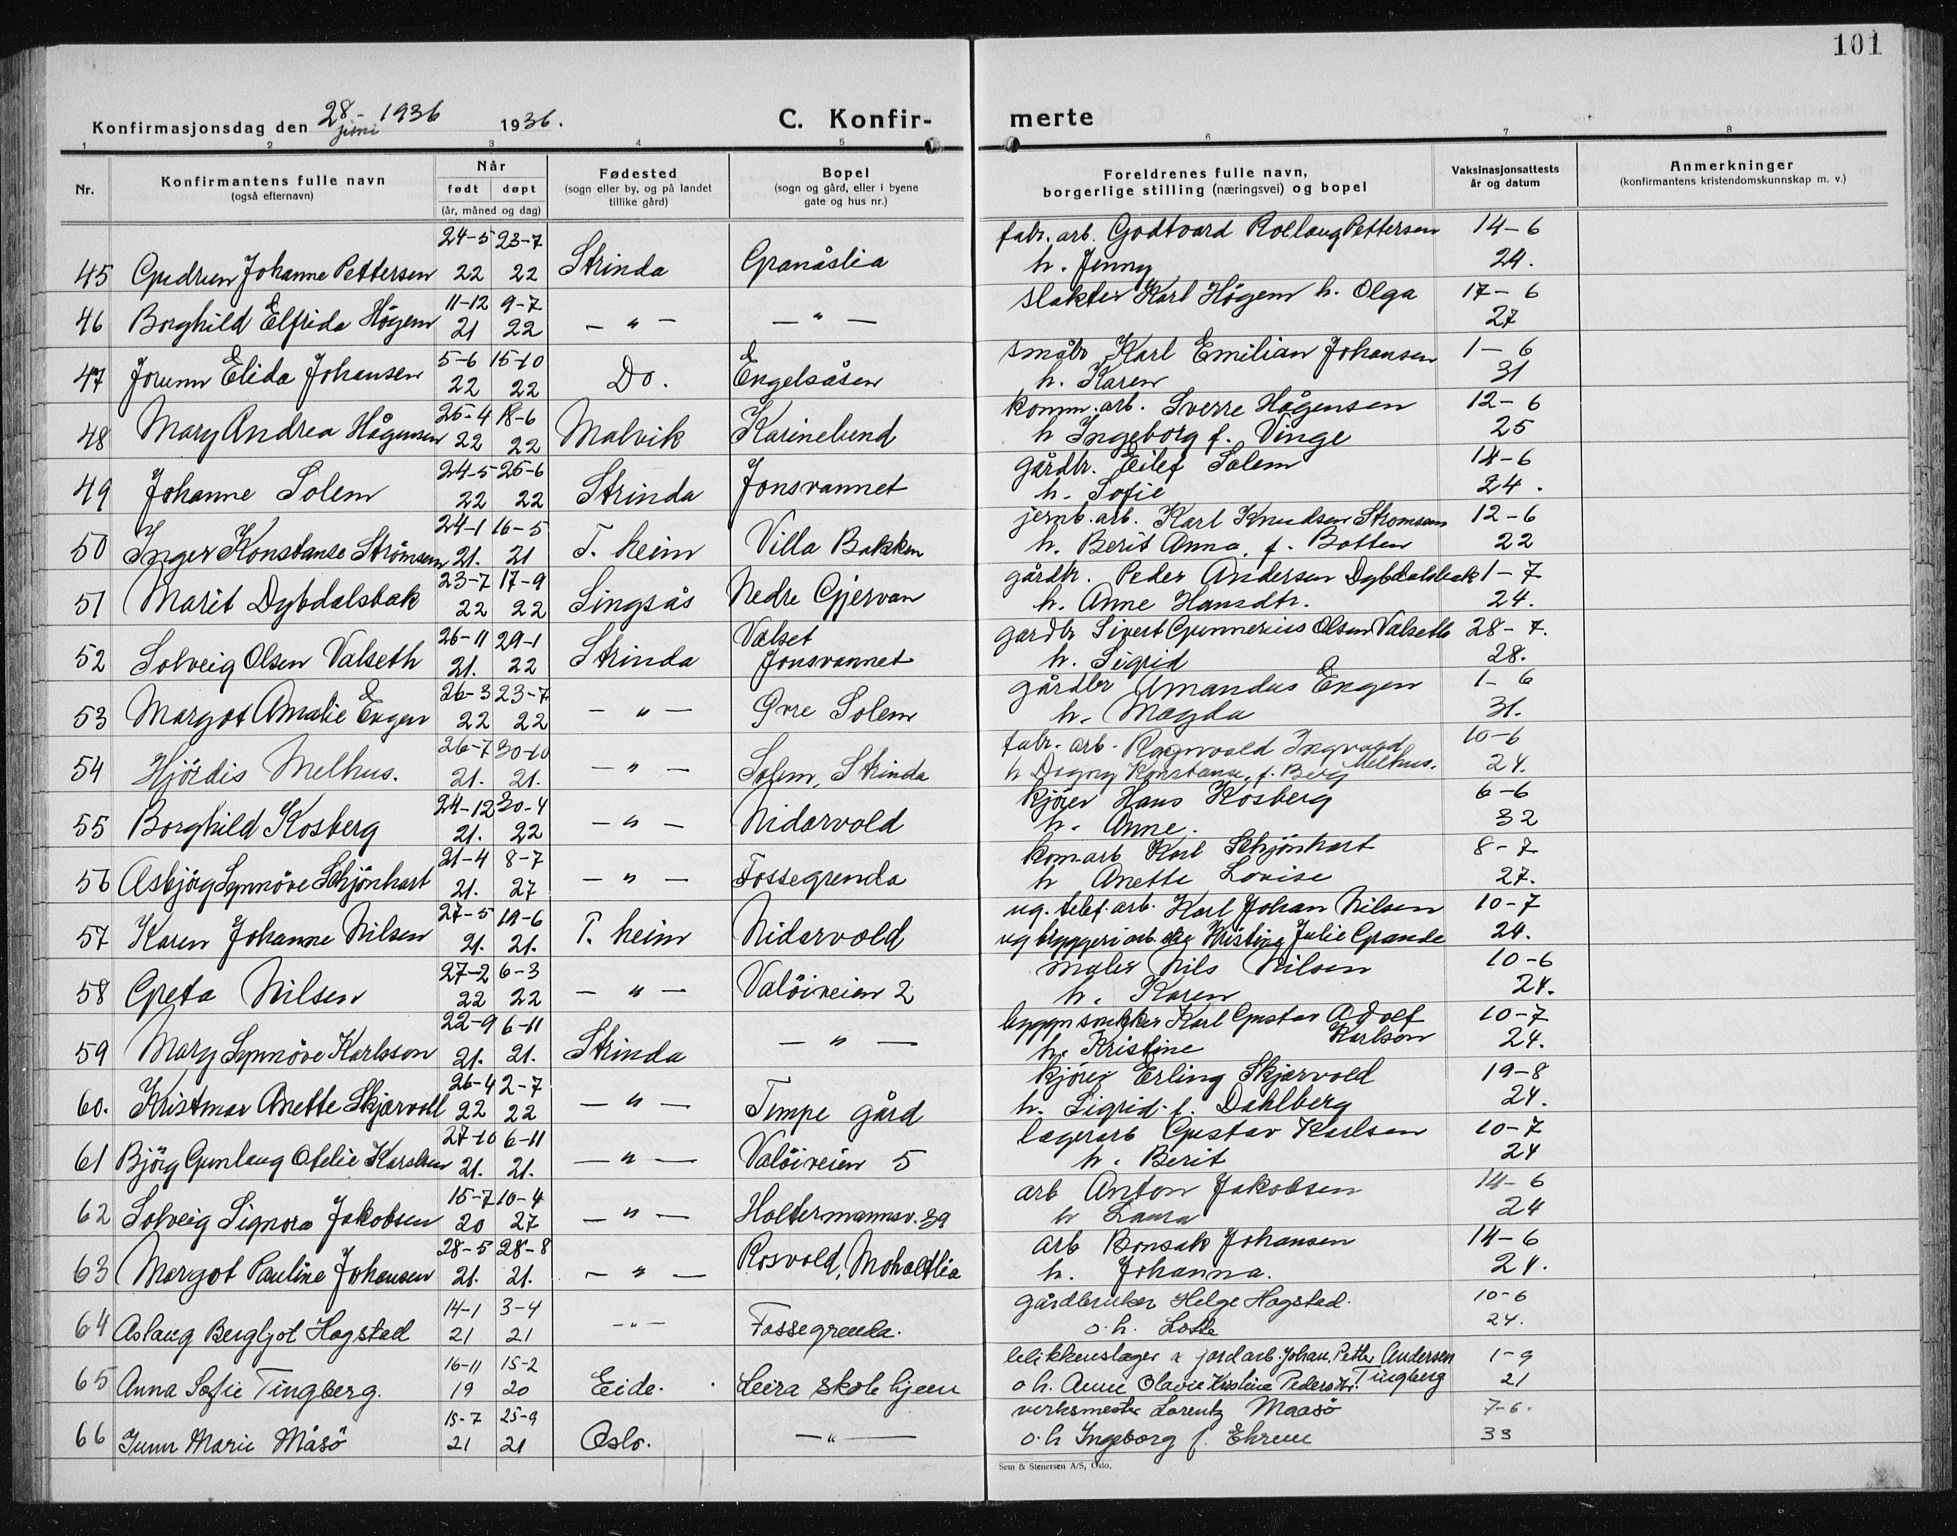 101
Konfirmasjonsdag den 28 juni - 1936 1936.
C. Konfirmerte
1 2 3 4 5 6 7 8
Nr. Konfirmantens fulle navn (også efternavn) Når født døpt (år, måned og dag) Fødested (sogn eller by, og på landet tillike gård) Bopel (sogn og gård, eller i byene gate og hus nr.) Foreldrenes fulle navn, borgerlige stilling (næringsvei) og bopel Vaksinasjonsattests år og datum Anmerkninger (konfirmantens kristendomskunnskap m. v.)
24-5 23-7 fabr. arb. Godtvard Rollaug Pettersen 14-6
45 Gudrun Johanne Pettersen 22 22 Strinda Granåslia h. Jenny 24.
11-12 9-7 slakter Karl Högem h. Olga 17-6
46 Borghild Elfrida Högem 21 22 — " — — " — 27
5-6 15-10 småbr Karl Emilian Johansen 1-6
47 Jorunn Elida Johansen 22 22 Do. Engelsåsen h. Karen 31
25-4 18-6 komm. arb. Sverre Hågensen 12-6
48 Mary Andrea Hågensen 22 22 Malvik Karinelund h Ingeborg f. Vinge 25
24-5 25-6 gårdbr. Eilef Solem 14-6
49 Johanne Solem 22 22 Strinda Jonsvannet h. Sofie 24.
24-1 16-5 jernb. arb. Karl Knudsen Stromsem 12-6
50 Inger Konstanse Strömsem 21. 21 T. heim Villa Bakken h. Berit Anna, f. Botten 22
23-7 17-9 gårdbr. Peder Andersen Dybdalsbak 1-7
51 Marit Dybdalsbak 22 22 Singsås Nedre Gjervan h. Anne Hansdtr. 24.
26-11 29-1 Valset gardbr Sivert Gunnerius Olsen Valseth 28-7.
52 Solveig Olsen Valseth 21. 22 Strinda Jonsvannet h. Sigrid 28.
26-3 23-7 gårdbr Amandus Engen 1-6
53 Margot Amalie Engen 22 22 — " — Øvre Solem h. Magda 31.
26-7 30-10 fabr. arb. Ragnvald Ingvald Melhus. 10-6
54 Hjördis Melhus. 21. 21. — " — Solem, Strinda h Dagny Konstanse, f. Berg 24.
24-12 30-4 kjörer Hans Kosberg 6-6
55 Borghild Kosberg 21. 22 — " — Nidarvold h. Anne. 32
21-4 8-7 kom arb Karl Schjönhart 8-7
56 Asbjög Synnöve Schjönhart 21. 27 — " — Fossegrenda h Anette Lovise 27.
27-5 19-6 ug. telef. arb. Karl Johan Nilsen 10-7
57 Karen Johanne Nilsen 21. 21. T. heim Nidarvold ug bryggeri arb. ske Kristina Julie Grande 24.
27-2 6-3 maler Nils Nilsen 10-6
58 Greta Nilsen 22 22 — " — Valöiveien 2 h. Karen 24.
22-9 6-11 byggn snekker Karl Gustav Adolf Karlson 10-7
59 Mary Synnöve Karlsson 21. 21. Strinda — " — h. Kristine 24.
26-4 2-7 kjörer Erling Skjærvold 19-8
60. Kristmar Anette Skjærvoll 22 22 — " — Tempe gård h. Sigrid. f. Dahlberg 24.
27-10 6-11 lagerarb Gustav Karlsen 10-7
61 Björg Gunlaug Otelie Karslsen 21. 21. — " — Valöiveien 5 h. Berit 24
15-7 10-4 arb Anton Jakobsen 14-6
62 Solveig Signora Jakobsen 20 27 — " — Holtermannsv. 39 h Laura 24
28-5 28-8 arb Bonsak Johansen 14-6
63 Margot Pauline Johansen 21. 21. — " — Rosvold, Moholtlia h. Johanna. 24.
14-1 3-4 gårdbruker Helge Hagstad. 10-6
64 Aslaug Bergljot Hagstad 21 21 — " — Fossegrenda. o. h. Lotte 24.
16-11 15-2 blikkenslager & jordarb. Johan Petter Andersen Tingberg 1-9
65 Anna Sofie Tingberg. 19 20 Eide. Leira skolehjem o h. Anne Olavie Kristine Pedersdtr. 21
15-7 25-9 verksmester Lorentz Maasö 7-6.
66 Gunn Marie Måsö 21 21 Oslo. — " — o. h Ingeborg f. Ehren 33
Sem & Stenersen A/S, Oslo.